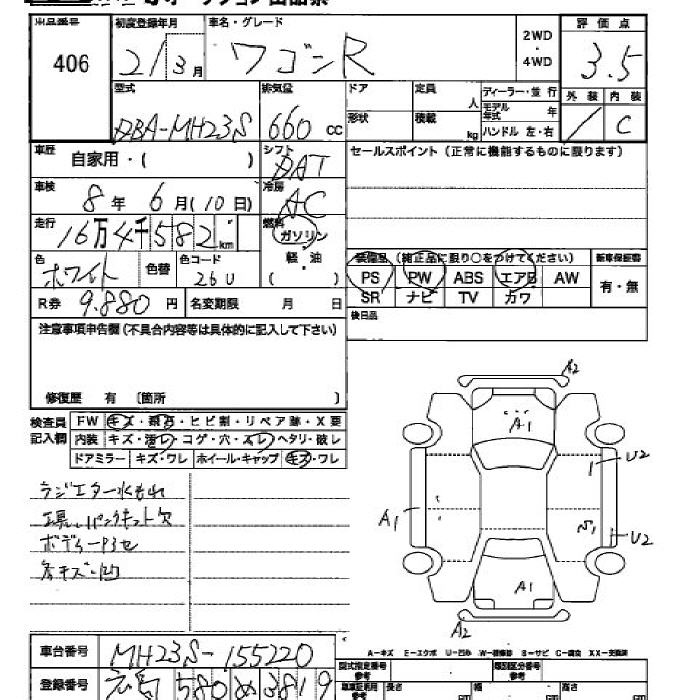 出品番号 初度登録年月 車名・グレード 2WD・4WD 評価点
406 21/3月 ワゴンR 3.5
型式 排気量 ドア 定員 人 ディーラー・並行 外装 内装
DBA-MH23S 660 cc 形状 積載 kg モデル年式 年 ハンドル 左・右 / C
車歴 自家用・( ) シフト DAT セールスポイント(正常に機能するものに限ります)
車検 8年 6月(10日) 冷房 AC
走行 16万4千582km 燃料 ガソリン
色 ホワイト 色替 色コード 26U 軽・油 ( ) 装備品 (純正品に限り○をつけてください) 新車保証書
PS PW ABS エアB AW 有・無
R券 9.880円 名変期限 月 日 SR ナビ TV カワ
注意事項申告欄(不具合内容等は具体的に記入して下さい) 後日品
修復歴 有 〔箇所 〕
検査員記入欄 FW キズ・飛石・ヒビ割・リペア跡・X要
内装 キズ・汚レ・コゲ・穴・スレ・ヘタリ・破レ
ドアミラー キズ・ワレ ホイール・キャップ キズ・ワレ
A2
A1
U2
ラジエター水もれ
工具・パンクキット欠
A1
S1
U2
ボディーP3セ
各キズ・凹
A1
A2
A-キズ E-エクボ U-凹み W-補修跡 S-サビ C-腐食 XX-交換済
車台番号 MH23S-155220 型式指定番号 参考 類別区分番号 参考
登録番号 580 め 3819 長さ 幅 高さ